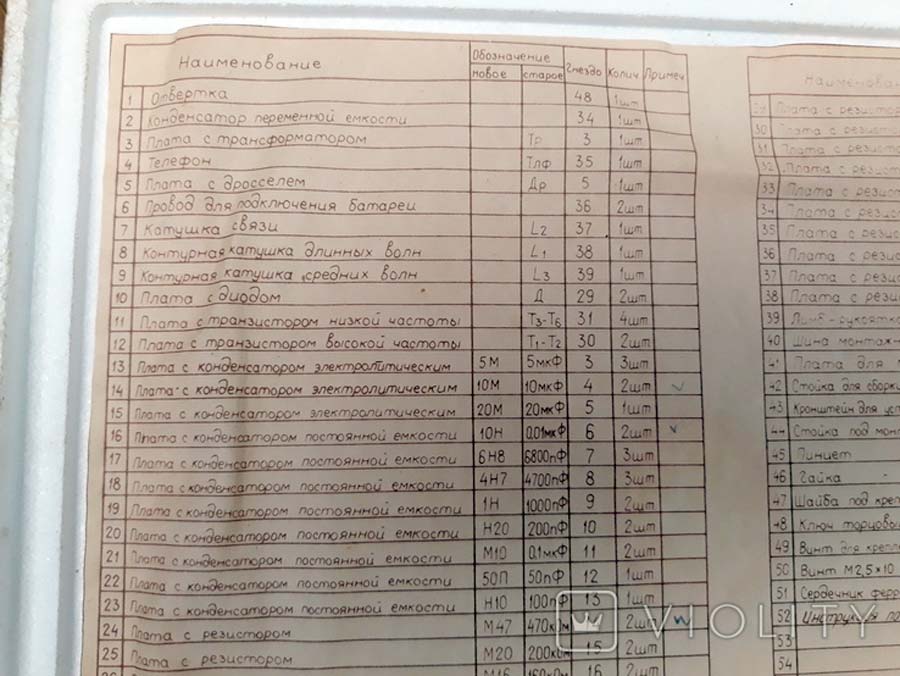 Наименование Обозначение Гнездо Колич Примеч
новое старое
1 Отвертка 48 1шт
2 Конденсатор переменной емкости 34 1шт
3 Плата с трансформатором Тр 3 1шт
4 Телефон Тлф 35 1шт
5 Плата с дросселем Др 5 1шт
6 Провод для подключения батареи 36 2шт
7 Катушка связи L2 37 1шт
8 Контурная катушка длинных волн L1 38 1шт
9 Контурная катушка средних волн L3 39 1шт
10 Плата с диодом Д 29 2шт
11 Плата с транзистором низкой частоты Т3-Т6 31 4шт
12 Плата с транзистором высокой частоты Т1-Т2 30 2шт
13 Плата с конденсатором электролитическим 5М 5мкФ 3 3шт
14 Плата с конденсатором электролитическим 10М 10мкФ 4 2шт
15 Плата с конденсатором электролитическим 20М 20мкФ 5 1шт
16 Плата с конденсатором постоянной емкости 10Н 0.01мкФ 6 2шт
17 Плата с конденсатором постоянной емкости 6Н8 6800пФ 7 3шт
18 Плата с конденсатором постоянной емкости 4Н7 4700пФ 8 3шт
19 Плата с конденсатором постоянной емкости 1Н 1000пФ 9 2шт
20 Плата с конденсатором постоянной емкости Н20 200пФ 10 2шт
21 Плата с конденсатором постоянной емкости М10 0.1мкФ 11 2шт
22 Плата с конденсатором постоянной емкости 50П 50пФ 12 1шт
23 Плата с конденсатором постоянной емкости Н10 100пФ 13 1шт
24 Плата с резистором М47 470кОм 2шт
25 Плата с резистором М20 200кОм 15 2шт
16 2шт
Наименован
29 Плата с резистор
30 Плата с резистор
31 Плата с резист
32 Плата с резис
33 Плата с резис
34 Плата с рез
35 Плата с рез
36 Плата с рези
37 Плата с рези
38 Плата с рези
39 Лимб-рукоятка
40 Шина монтаж
41 Плата для
42 Стойка для сборки
43 Кронштейн для уст
44 Стойка под мон
45 Пинцет
46 Гайка
47 Шайба под креп
48 Ключ торцовый
49 Винт для крепле
50 Винт М2,5×10
51 Сердечник ферр
52 Инструкция по
53
54
VIOLITY